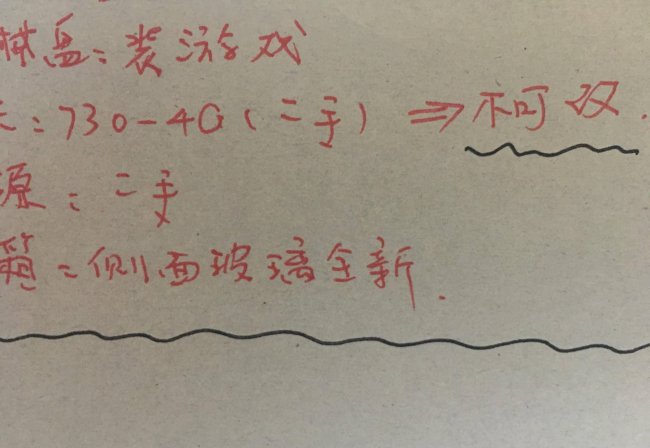 盘：装游戏
：730-4G（二手）⇒不可双.
源：二手
箱：侧面玻璃全新.